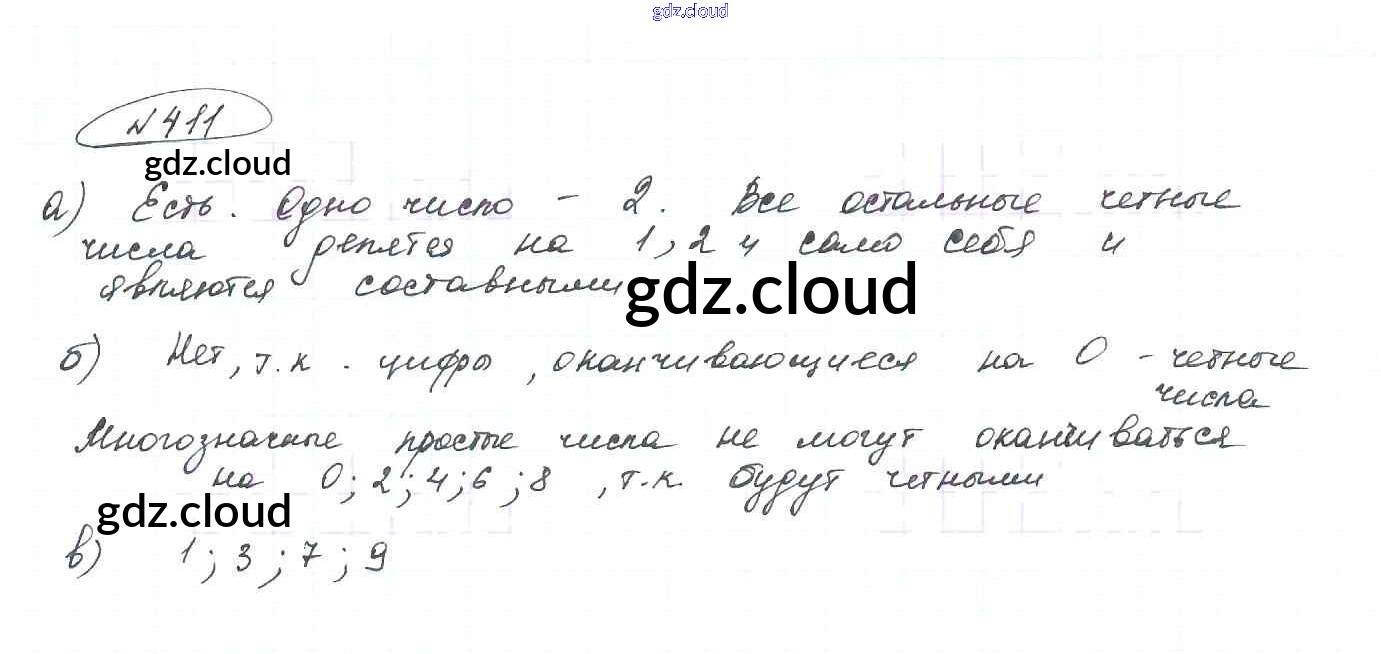 gdz.cloud
№411
gdz.cloud
а) Есть. Одно число - 2. Все остальные четные
числа делятся на 1, 2 и само себя и
являются составными
gdz.cloud
б) Нет, т.к. цифры, оканчивающиеся на 0 - четные
числа
Многозначные простые числа не могут оканчиваться
на 0; 2; 4; 6; 8, т.к. будут четными
gdz.cloud
в) 1; 3; 7; 9